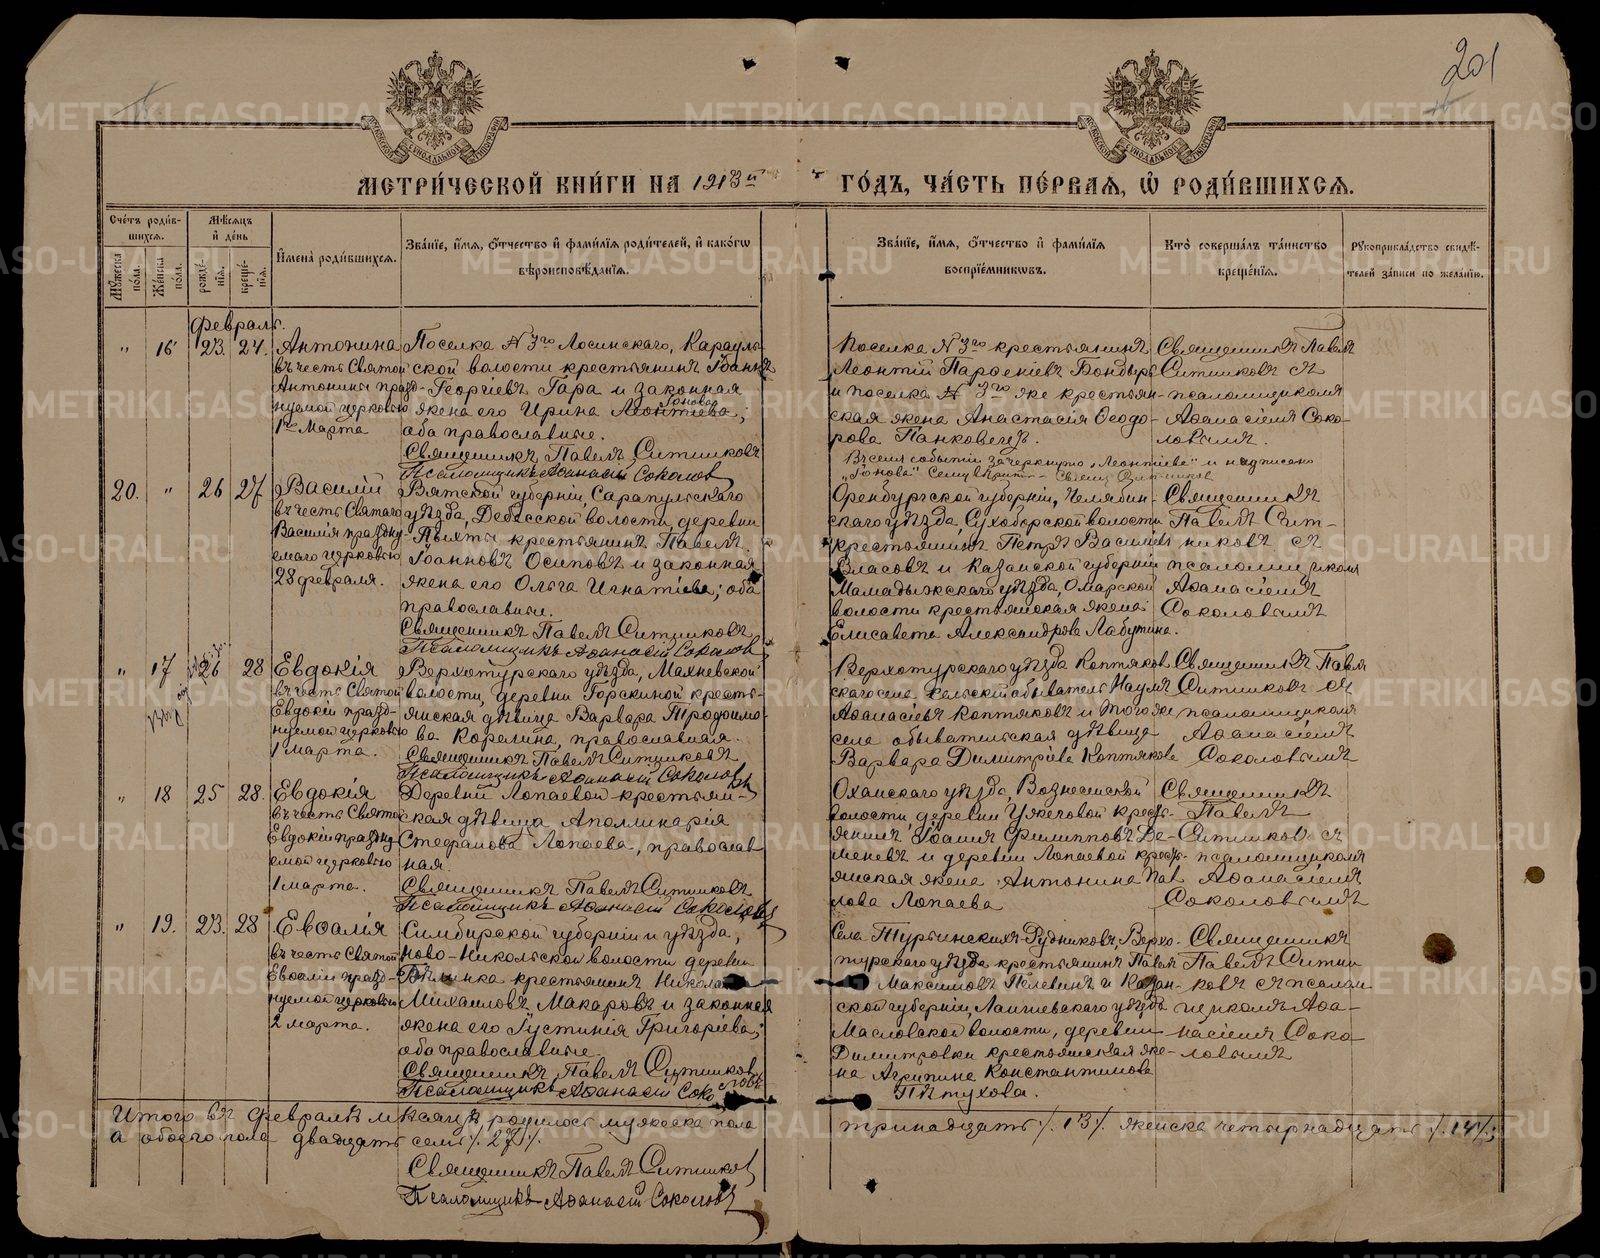 201
МЕТРИ́ЧЕСКОЙ КНИ́ГИ НА 1913й ГО́ДЪ, ЧА́СТЬ ПЕ́РВАЯ, Ѡ РОДИ́ВШИХСЯ.
Сче́тъ роди́вшихся.
Мѣ́сяцъ и де́нь
Имена̀ роди́вшихся.
Зва́нїе, и́мя, о́тчество и фами́лїя роди́телей, и како́гѡ вѣроисповѣ́данїя.
Зва́нїе, и́мя, о́тчество и фами́лїя воспрїе́мниковъ.
Кто̀ соверша́лъ та́инство креще́нїя.
Рукоприкла́дство свидѣ́телей за́писи по жела́нїю.
Му́жеска по́ла.
Же́нска по́ла.
рожде́нїя.
креще́нїя.
Февраль.
" 16 23. 24.
Антонина
въ честь Святой
Антонины празд-
нуемой церковью
1го Марта
Поселка N 3го Лосинскаго, Карауль-
ской волости крестьянинъ Іоаннъ
Георгіевъ Гара и законная
жена его Ирина Леонтіева;
оба православные.
Священникъ Павелъ Ситниковъ
Псаломщикъ Аѳанасій Соколов
Поселка N 3го крестьянинъ
Леонтій Парѳеніевъ Бондырь
и поселка N 3го же крестьян-
ская жена Анастасія Ѳеодо-
рова Панковецъ.
Въ семъ событіи зачеркнуто „Леонтіева" и надписано
Священникъ Павелъ
Ситниковъ съ
псаломщикомъ
Аѳанасіемъ Соко-
ловымъ.
20. " 26 27
Василій
въ честь Святаго
Василія праздну-
емаго церковью
28 февраля.
Вятской губерніи, Сарапульскаго
уѣзда, Дебесской волости, деревни
Пыхты крестьянинъ Павелъ
Іоанновъ Осиповъ и законная
жена его Ольга Игнатіева; оба
православные.
Священникъ Павелъ Ситниковъ
Псаломщикъ Аѳанасій Соколов
Оренбургской губерніи, Челябин-
скаго уѣзда, Сухоборской волости
крестьянинъ Петръ Васильевъ
Власовъ и Казанской губерніи
Мамадыжскаго уѣзда, Омарской
волости крестьянская жена
Елисавета Александрова Лабутина.
Священникъ
Павелъ Сит-
никовъ съ
псаломщикомъ
Аѳанасіемъ
Соколовымъ
" 17 26 28
Евдокія
въ честь Святой
Евдокіи празд-
нуемой церковью
1 марта.
Верхотурскаго уѣзда, Махневской
волости, деревни Горскиной кресть-
янская дѣвица Варвара Трофимо-
ва Корелина, православная.
Священникъ Павелъ Ситниковъ
Псаломщикъ Аѳанасій Соколовъ
Верхотурскаго уѣзда Коптяков-
скаго села сельскій обыватель Наумъ
Аѳанасіевъ Коптяковъ и того же
села обывательская дѣвица
Варвара Димитріева Коптякова
Священникъ Павелъ
Ситниковъ съ
псаломщикомъ
Аѳанасіемъ
Соколовымъ
" 18 25 28.
Евдокія
въ честь Святой
Евдокіи праздну-
емой церковью
1 марта.
Деревни Лопаевой крестьян-
ская дѣвица Аполлинарія
Стефанова Лопаева, православ
ная.
Священникъ Павелъ Ситниковъ
Псаломщикъ Аѳанасій Соколовъ
Оханскаго уѣзда, Вознесенской
волости, деревни кресть-
янинъ Іоаннъ Филипповъ Де-
меневъ и деревни Лопаевой кресть-
янская жена Антонина Пав
лова Лопаева
Священникъ
Павелъ
Ситниковъ съ
псаломщикомъ
Аѳанасіемъ
Соколовымъ
" 19. 23. 28
Евѳалія
въ честь Святой
Евѳаліи празд-
нуемой церковью
2 марта.
Симбирской губерніи и уѣзда,
Ново-Никольской волости деревни
крестьянинъ Николай
Михаиловъ Макаровъ и законная
жена его Іустинія Григоріева;
оба православные.
Священникъ Павелъ Ситниковъ
Псаломщикъ Аѳанасій Соколовъ
Села Турьинскихъ Рудниковъ, Верхо-
турскаго уѣзда крестьянинъ Павелъ
Максимовъ Пелевинъ и Казан-
ской губерніи, Лаишевскаго уѣзда
Масловской волости, деревни
Димитровки крестьянская же-
на Агрипина Константинова
Пѣтухова.
Священникъ
Павелъ Ситни
ковъ съ псалом
щикомъ Аѳа-
насіемъ Соко
ловымъ
Итого въ Февралѣ мѣсяцѣ, родилось мужеска пола тринадцать /. 13 /. женска четырнадцать /. 14 /.;
а обоего пола двадцать семь /. 27 /.
Священникъ Павелъ Ситников
Псаломщикъ Аѳанасій Соколовъ
METRIKI.GASO-URAL.RU